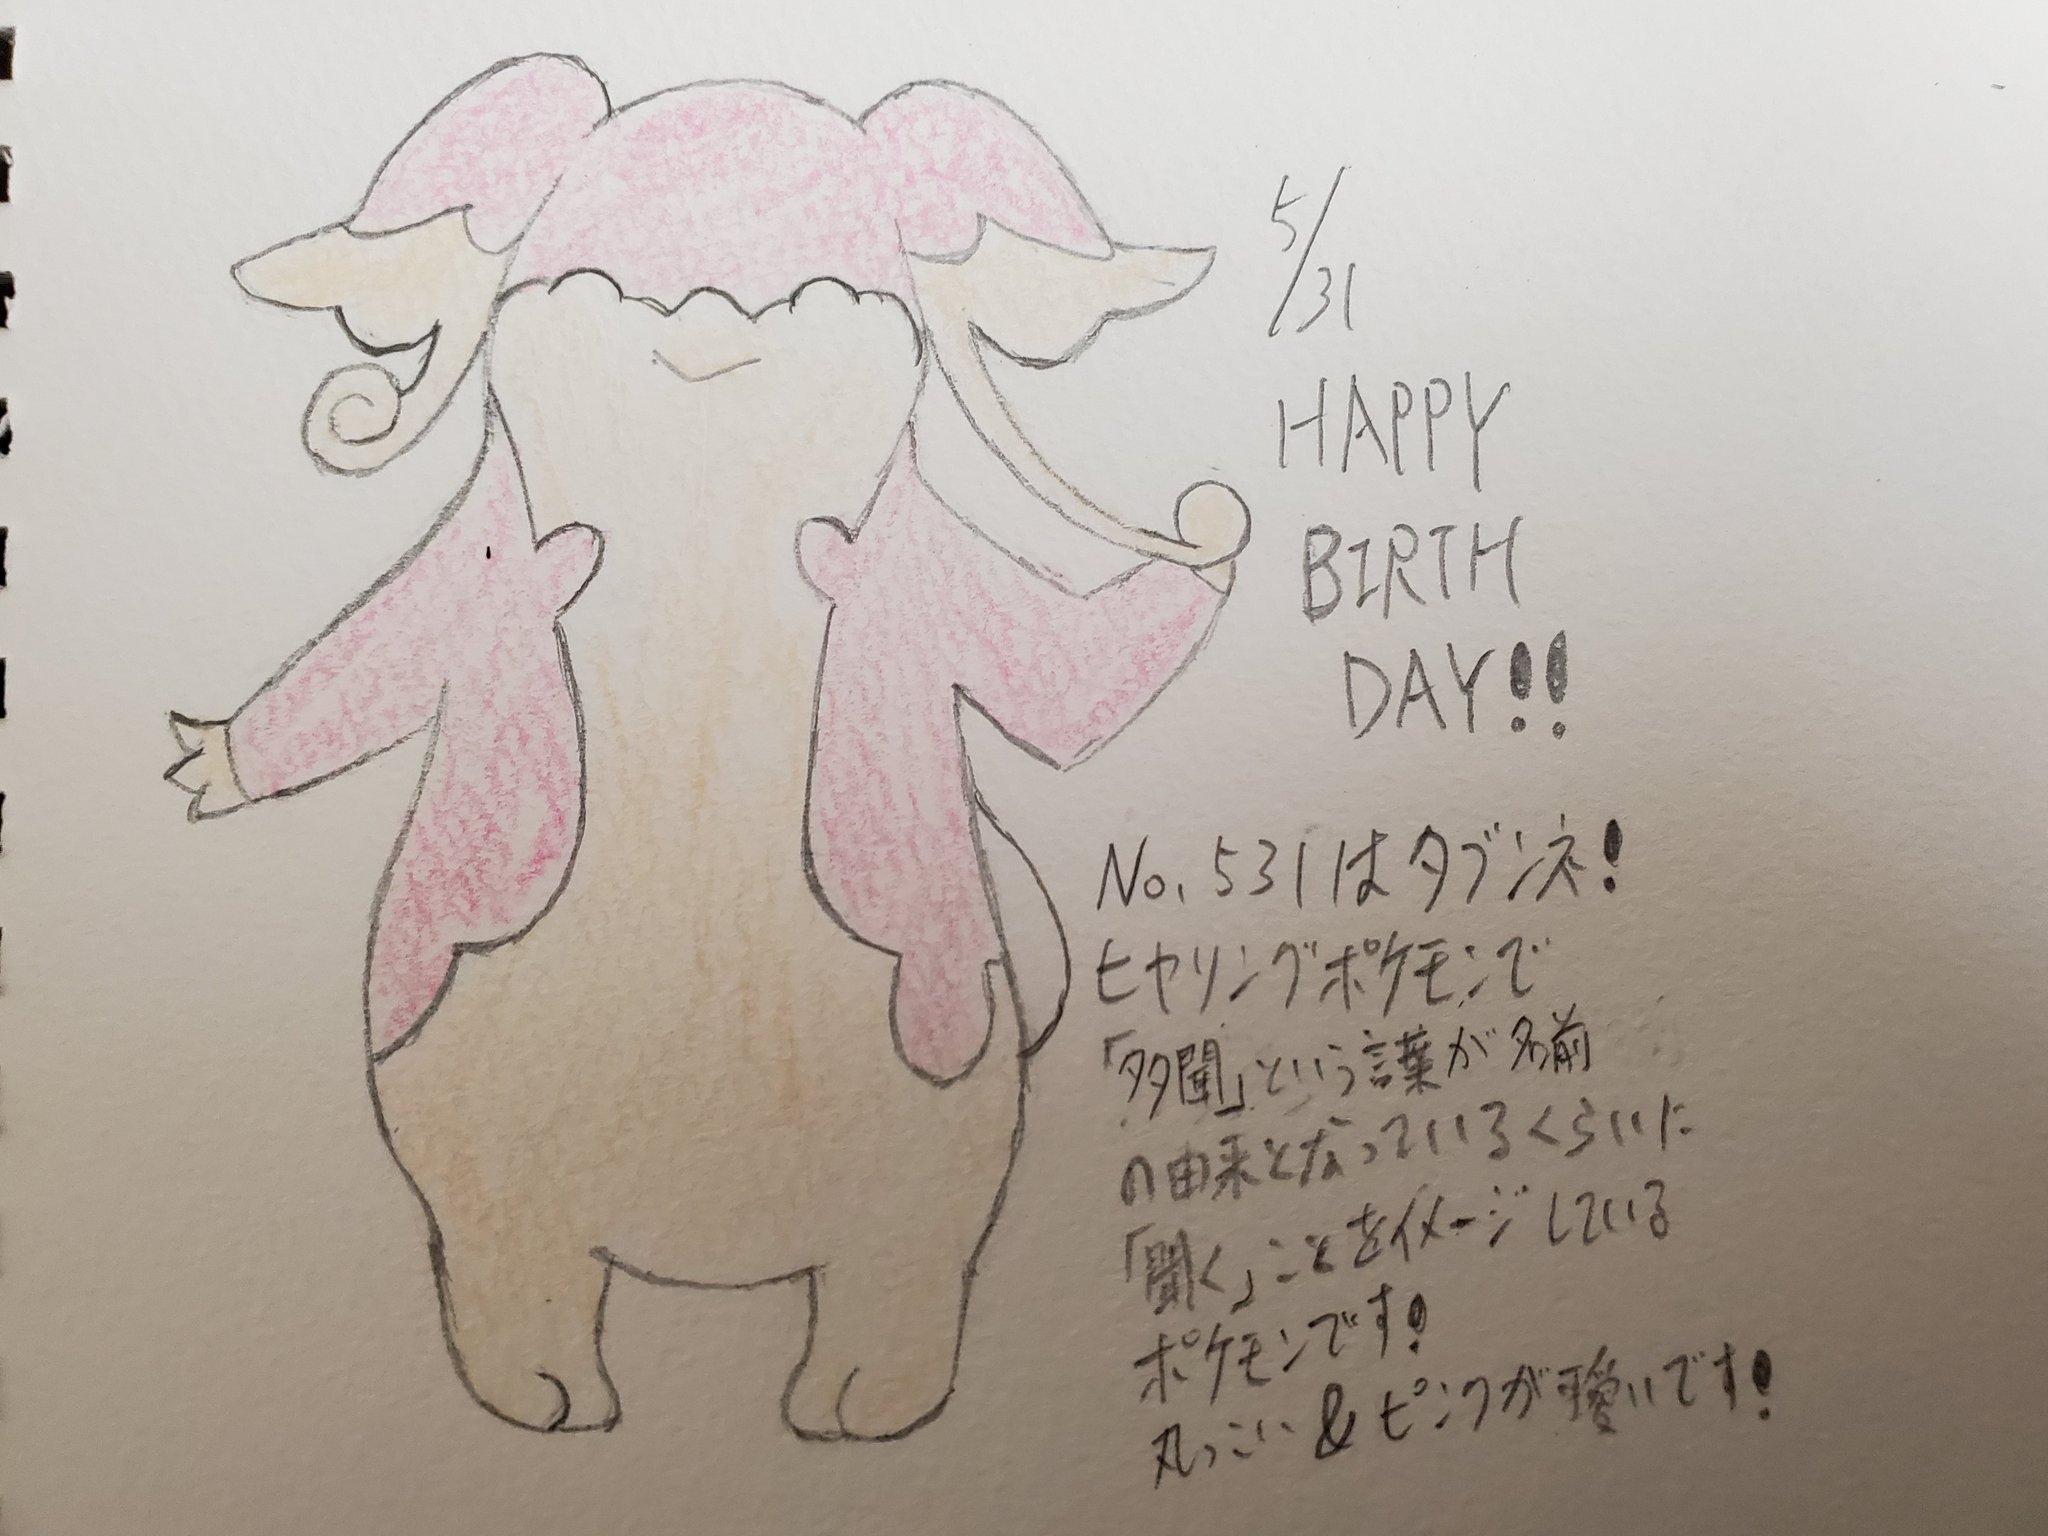 5/31
HAPPY
BIRTH
DAY!!
No.531はタブンネ!
ヒヤリングポケモンで
「多聞」という言葉が名前
の由来となっているくらいに
「聞く」ことをイメージしている
ポケモンです!
丸っこい&ピンクが可愛いです!